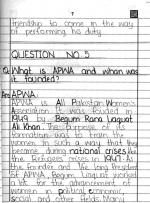 7
friendship to come in the way
of performing his duty.
QUESTION NO.5
Q: What is APWA and when was
it founded?
Ans: APWA:
APWA is All Pakistan Women's
Association. It was founded in
1949 by Begum Rana Liaquat
Ali Khan. The purpose of its
formation was to train the
women in such a way that they
became during national crises like
the Refugees crises in 1947. As
the Founder and life long President
of APWA, Begum Liaquat worked
a lot for the advancement of
women in political, economic,
social and other fields. Many